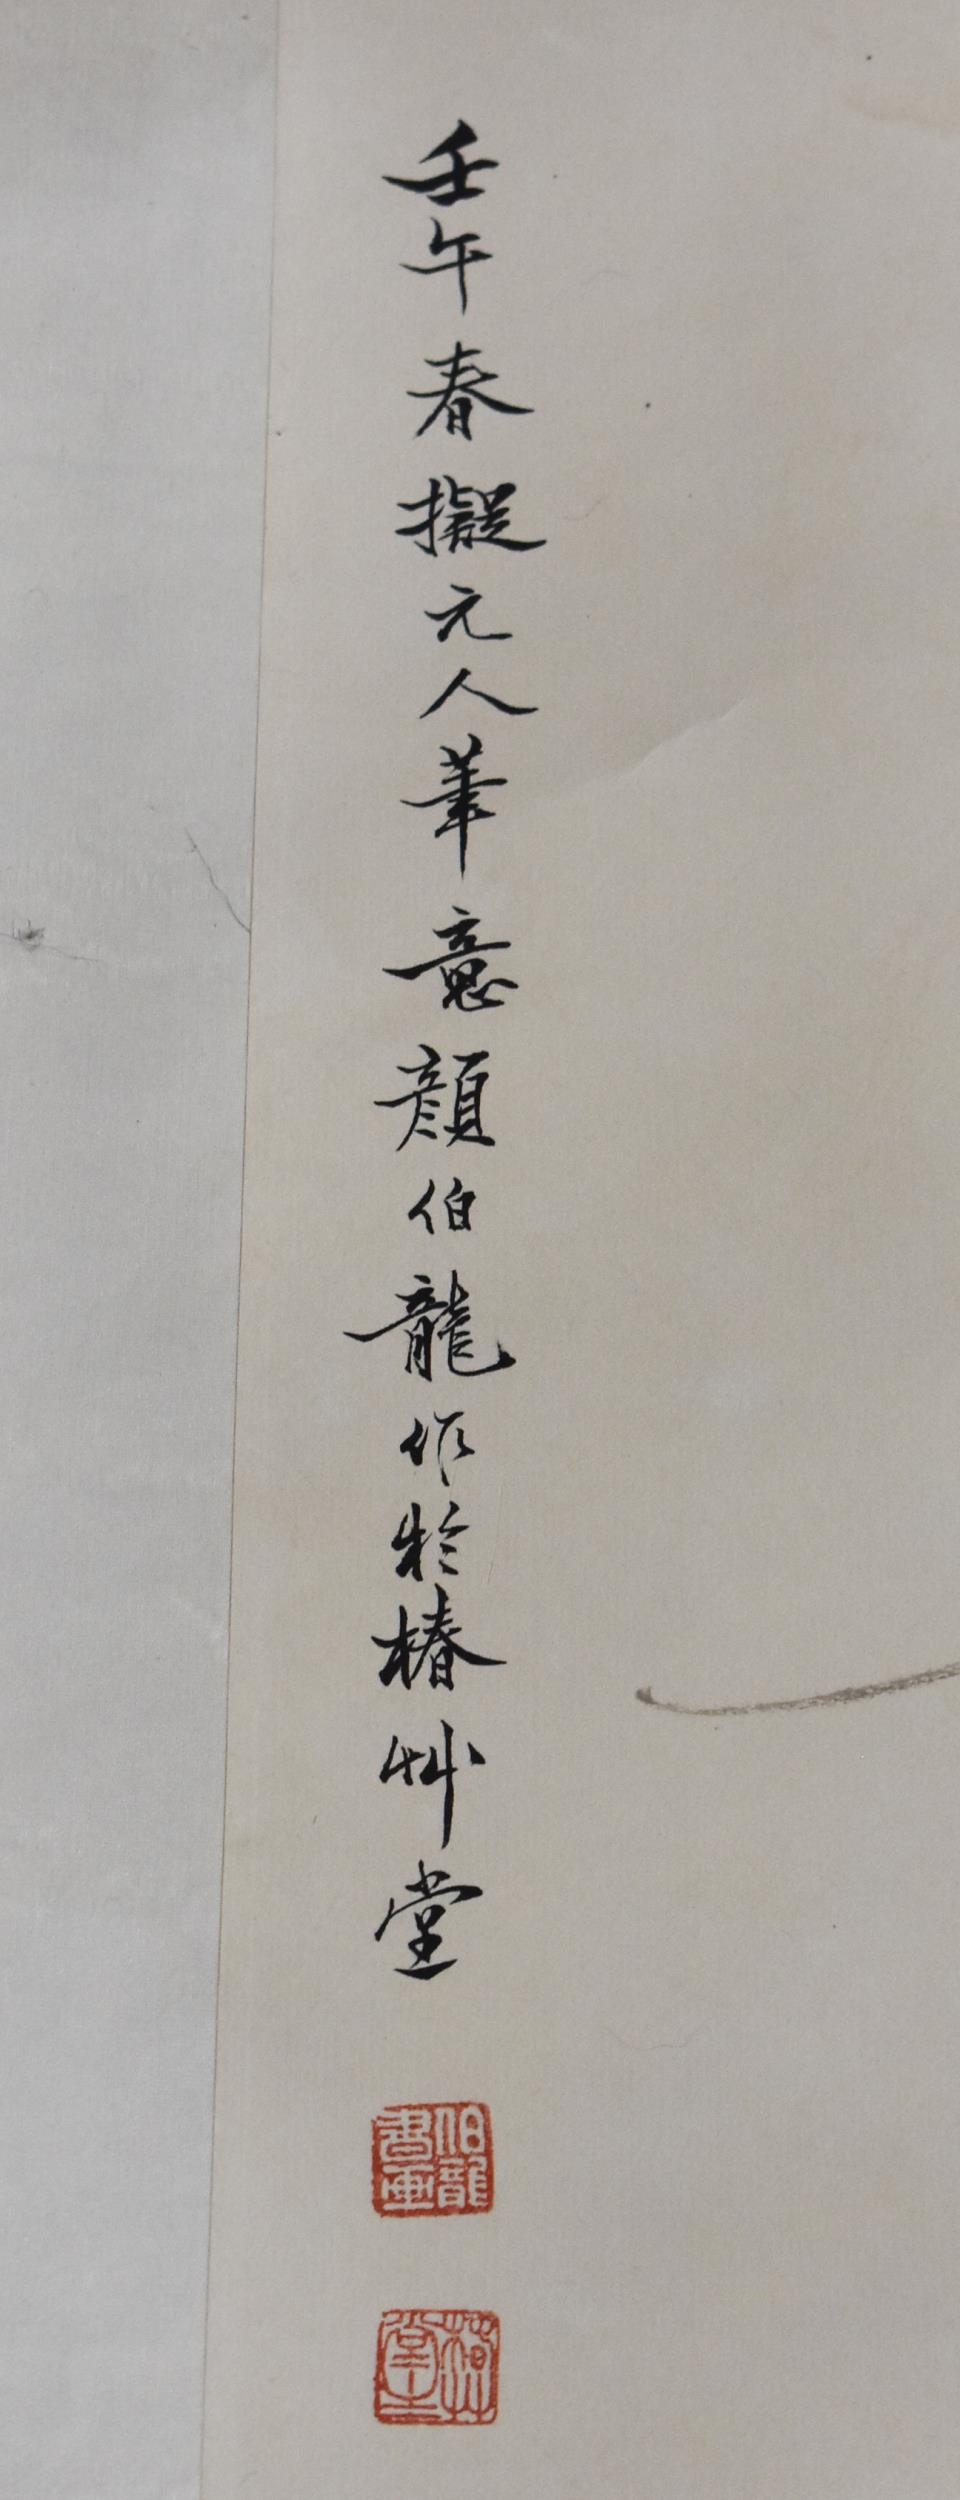 壬午春擬元人筆意顏伯龍作於椿艸堂
伯龍書画